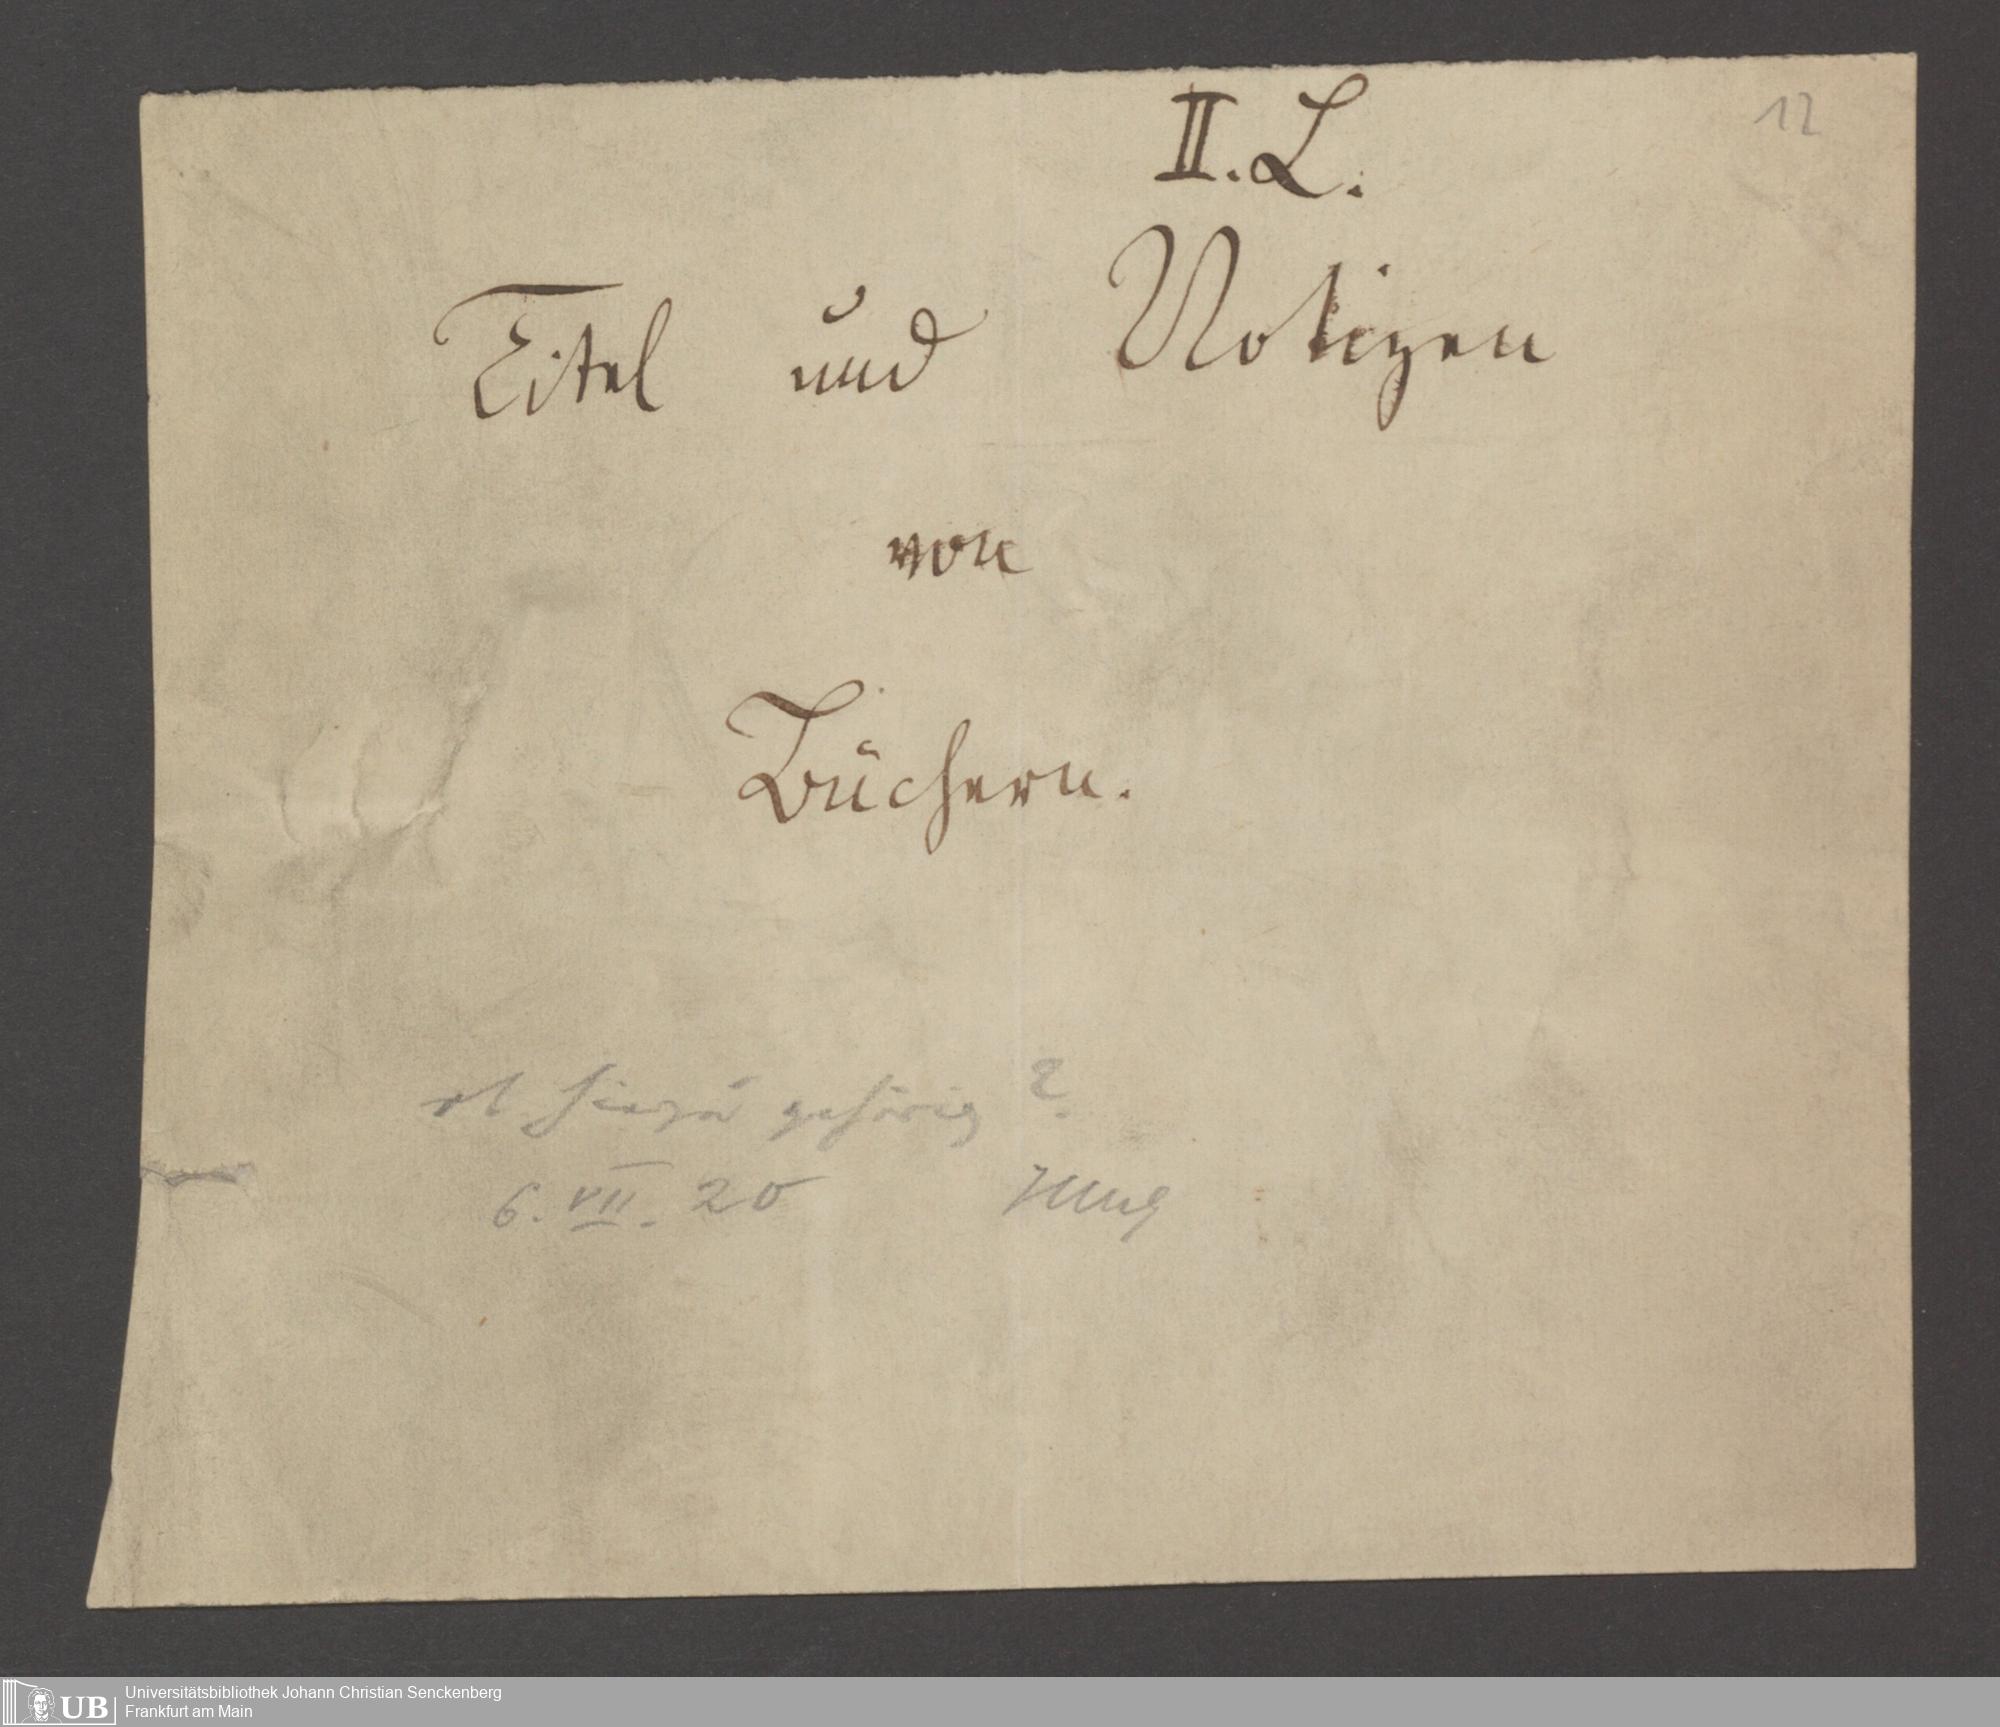 12
II. L.
Titel und Notizen
von
Büchern.
ob hierzu gehörig?
6. VII. 20
UB
Universitätsbibliothek Johann Christian Senckenberg
Frankfurt am Main